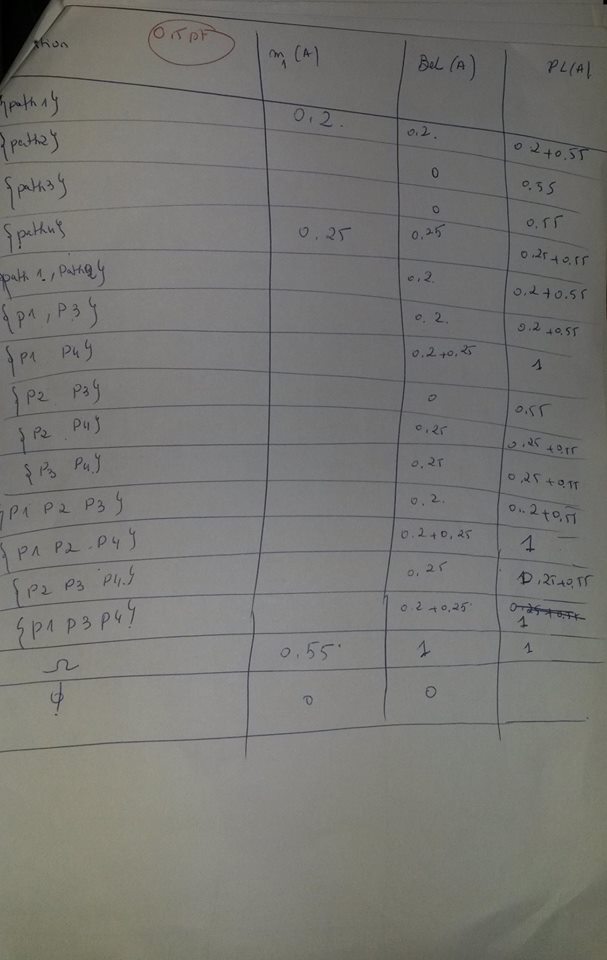 0.5 pt
m₁(A) Bel(A) PL(A)
{path1} 0.2. 0.2. 0.2+0.55
{path2} 0 0.55
{path3} 0 0.55
{path4} 0.25 0.25 0.25+0.55
path1, path2} 0.2 0.2+0.55
{p1, P3} 0.2. 0.2+0.55
{P1 P4} 0.2+0.25 1
{P2 P3} 0 0.55
{P2 P4} 0.25 0.25+0.55
{P3 P4} 0.25 0.25+0.55
{P1 P2 P3} 0.2. 0.2+0.55
{P1 P2 P4} 0.2+0.25 1
{P2 P3 P4} 0.25 0.25+0.55
{P1 P3 P4} 0.2+0.25 0.25+0.55
1
Ω 0.55 1 1
ϕ 0 0